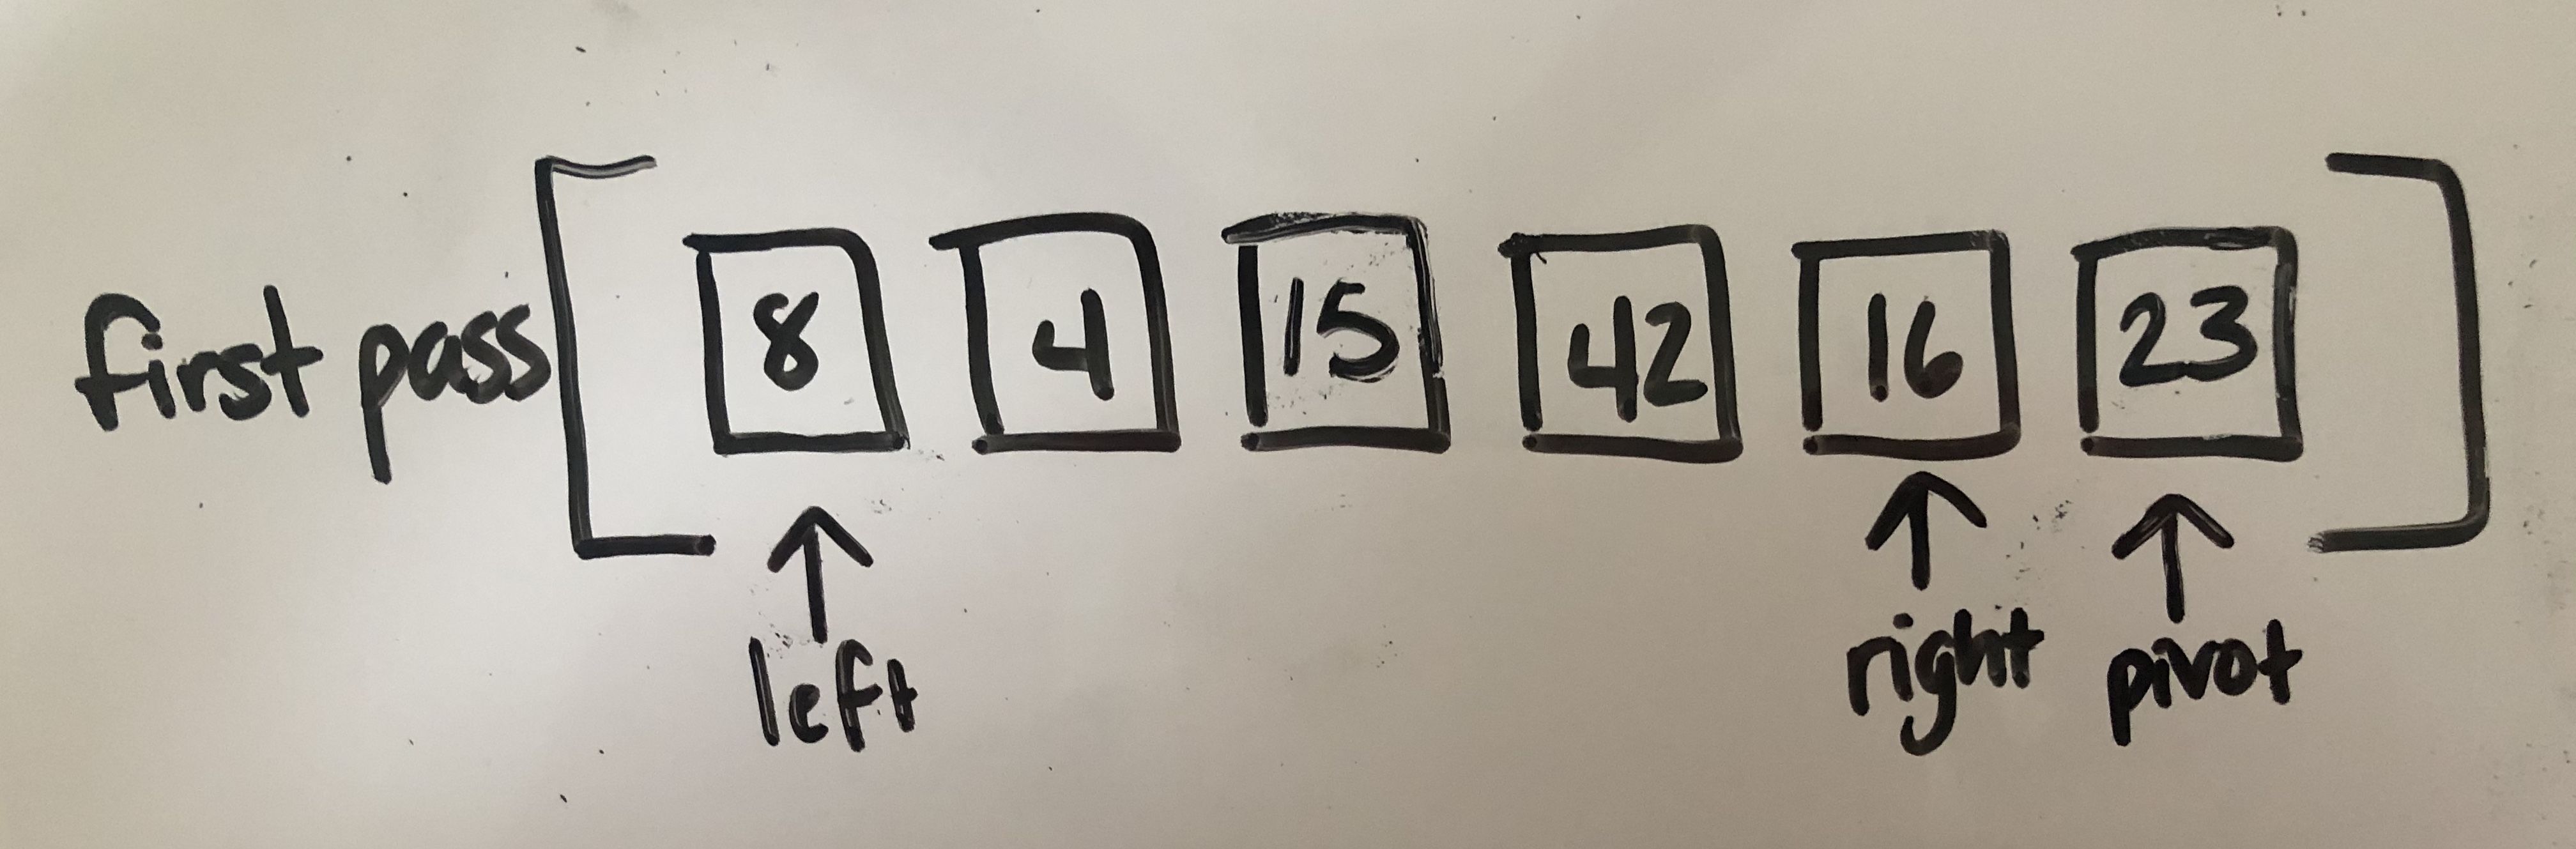 first pass [ 8 4 15 42 16 23 ]
left right pivot